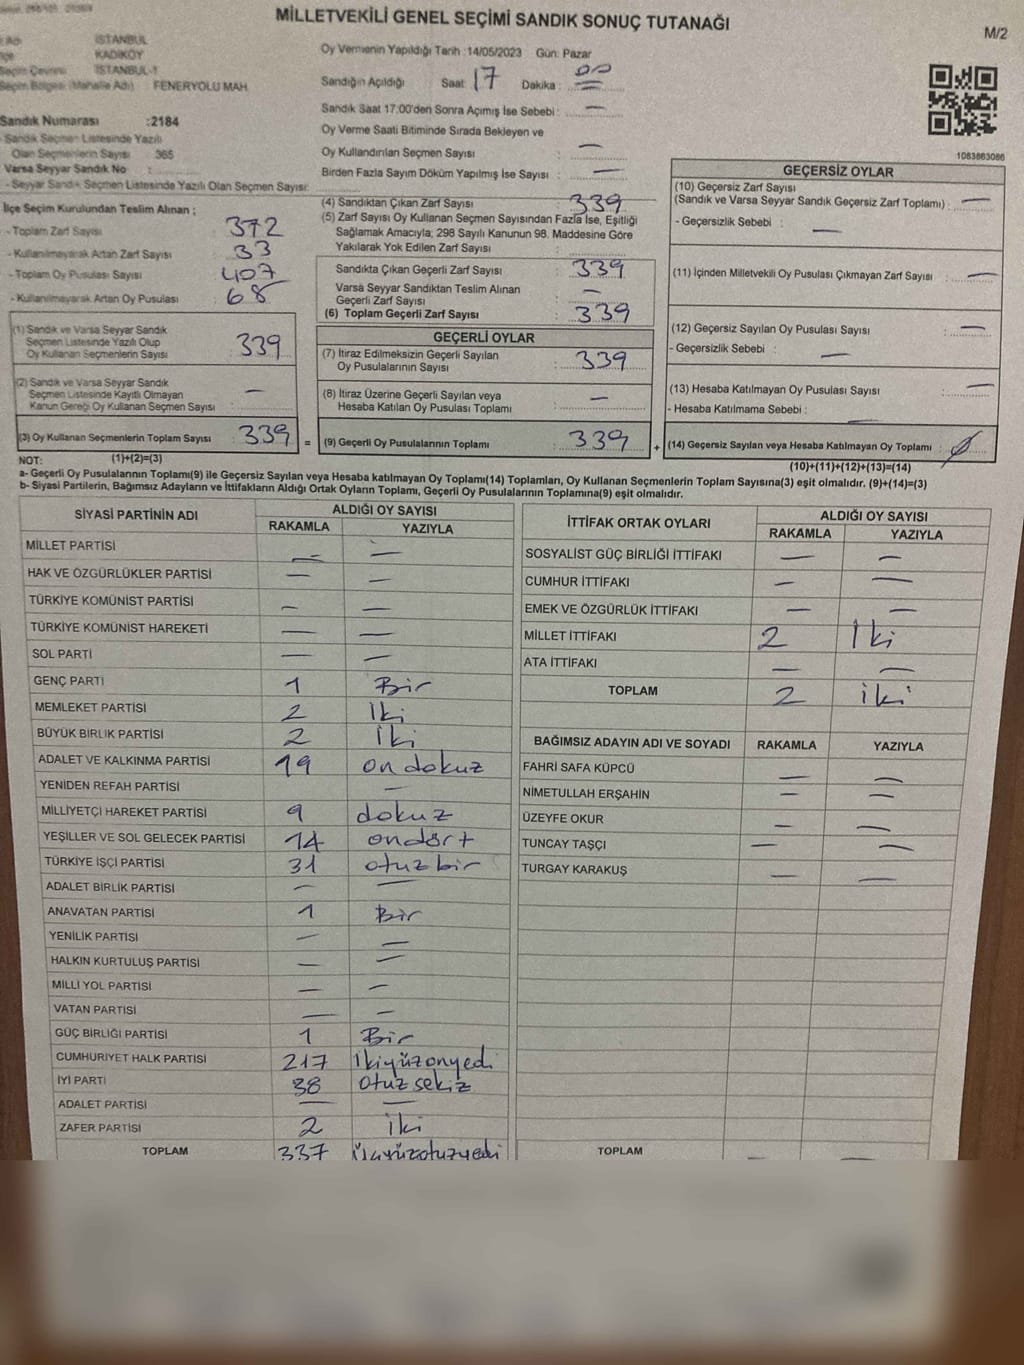 MİLLETVEKİLİ GENEL SEÇİMİ SANDIK SONUÇ TUTANAĞI
M/2
İSTANBUL
KADIKÖY
Seçim Çevresi İSTANBUL-1
Seçim Bölgesi (Mahalle Adı) : FENERYOLU MAH.
Oy Vermenin Yapıldığı Tarih :14/05/2023 Gün: Pazar
Sandığın Açıldığı Saat: 17 Dakika : 00
Sandık Saat 17:00'den Sonra Açımış İse Sebebi : —
Oy Verme Saati Bitiminde Sırada Bekleyen ve
Oy Kullandırılan Seçmen Sayısı : —
Birden Fazla Sayım Döküm Yapılmış İse Sayısı : —
Sandık Numarası :2184
- Sandık Seçmen Listesinde Yazılı
Olan Seçmenlerin Sayısı : 365
Varsa Seyyar Sandık No :
- Seyyar Sandık Seçmen Listesinde Yazılı Olan Seçmen Sayısı:
1083863086
İlçe Seçim Kurulundan Teslim Alınan ;
- Toplam Zarf Sayısı : 372
- Kullanılmayarak Artan Zarf Sayısı : 33
- Toplam Oy Pusulası Sayısı : 407
- Kullanılmayarak Artan Oy Pusulası : 68
(1) Sandık ve Varsa Seyyar Sandık
Seçmen Listesinde Yazılı Olup
Oy Kullanan Seçmenlerin Sayısı : 339
(2) Sandık ve Varsa Seyyar Sandık
Seçmen Listesinde Kayıtlı Olmayan
Kanun Gereği Oy Kullanan Seçmen Sayısı : —
(3) Oy Kullanan Seçmenlerin Toplam Sayısı : 339 =
(1)+(2)=(3)
(4) Sandıktan Çıkan Zarf Sayısı : 339
(5) Zarf Sayısı Oy Kullanan Seçmen Sayısından Fazla İse, Eşitliği
Sağlamak Amacıyla; 298 Sayılı Kanunun 98. Maddesine Göre
Yakılarak Yok Edilen Zarf Sayısı :
Sandıkta Çıkan Geçerli Zarf Sayısı : 339
Varsa Seyyar Sandıktan Teslim Alınan
Geçerli Zarf Sayısı : —
(6) Toplam Geçerli Zarf Sayısı : 339
GEÇERLİ OYLAR
(7) İtiraz Edilmeksizin Geçerli Sayılan
Oy Pusulalarının Sayısı : 339
(8) İtiraz Üzerine Geçerli Sayılan veya
Hesaba Katılan Oy Pusulası Toplamı : —
(9) Geçerli Oy Pusulalarının Toplamı : 339 +
GEÇERSİZ OYLAR
(10) Geçersiz Zarf Sayısı
(Sandık ve Varsa Seyyar Sandık Geçersiz Zarf Toplamı) : —
- Geçersizlik Sebebi : —
(11) İçinden Milletvekili Oy Pusulası Çıkmayan Zarf Sayısı : —
(12) Geçersiz Sayılan Oy Pusulası Sayısı : —
- Geçersizlik Sebebi : —
(13) Hesaba Katılmayan Oy Pusulası Sayısı : —
- Hesaba Katılmama Sebebi : —
(14) Geçersiz Sayılan veya Hesaba Katılmayan Oy Toplamı : Ø
(10)+(11)+(12)+(13)=(14)
NOT:
a- Geçerli Oy Pusulalarının Toplamı(9) ile Geçersiz Sayılan veya Hesaba katılmayan Oy Toplamı(14) Toplamları, Oy Kullanan Seçmenlerin Toplam Sayısına(3) eşit olmalıdır. (9)+(14)=(3)
b- Siyasi Partilerin, Bağımsız Adayların ve İttifakların Aldığı Ortak Oyların Toplamı, Geçerli Oy Pusulalarının Toplamına(9) eşit olmalıdır.
SİYASİ PARTİNİN ADI ALDIĞI OY SAYISI
RAKAMLA YAZIYLA
MİLLET PARTİSİ — —
HAK VE ÖZGÜRLÜKLER PARTİSİ — —
TÜRKİYE KOMÜNİST PARTİSİ — —
TÜRKİYE KOMÜNİST HAREKETİ — —
SOL PARTİ — —
GENÇ PARTİ 1 Bir
MEMLEKET PARTİSİ 2 İki
BÜYÜK BİRLİK PARTİSİ 2 İki
ADALET VE KALKINMA PARTİSİ 19 on dokuz
YENİDEN REFAH PARTİSİ —
MİLLİYETÇİ HAREKET PARTİSİ 9 dokuz
YEŞİLLER VE SOL GELECEK PARTİSİ 14 ondört
TÜRKİYE İŞÇİ PARTİSİ 31 otuzbir
ADALET BİRLİK PARTİSİ — —
ANAVATAN PARTİSİ 1 Bir
YENİLİK PARTİSİ — —
HALKIN KURTULUŞ PARTİSİ — —
MİLLİ YOL PARTİSİ — —
VATAN PARTİSİ — —
GÜÇ BİRLİĞİ PARTİSİ 1 Bir
CUMHURİYET HALK PARTİSİ 217 İkiyüzonyedi
İYİ PARTİ 38 Otuz sekiz
ADALET PARTİSİ — —
ZAFER PARTİSİ 2 İki
TOPLAM 337 Üçyüzotuzyedi
İTTİFAK ORTAK OYLARI ALDIĞI OY SAYISI
RAKAMLA YAZIYLA
SOSYALİST GÜÇ BİRLİĞİ İTTİFAKI — —
CUMHUR İTTİFAKI — —
EMEK VE ÖZGÜRLÜK İTTİFAKI — —
MİLLET İTTİFAKI 2 İki
ATA İTTİFAKI — —
TOPLAM 2 iki
BAĞIMSIZ ADAYIN ADI VE SOYADI RAKAMLA YAZIYLA
FAHRİ SAFA KÜPCÜ — —
NİMETULLAH ERŞAHİN — —
ÜZEYFE OKUR — —
TUNCAY TAŞÇI — —
TURGAY KARAKUŞ — —
TOPLAM — —